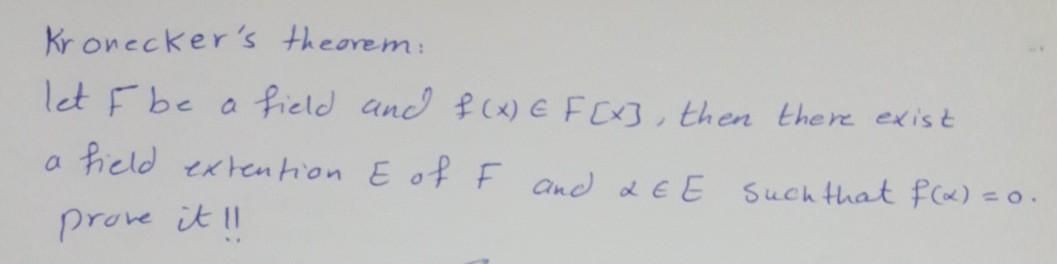 Kronecker's theorem:
let F be a field and f(x) ∈ F[x], then there exist
a field extention E of F and α ∈ E such that f(α) = 0.
prove it !!